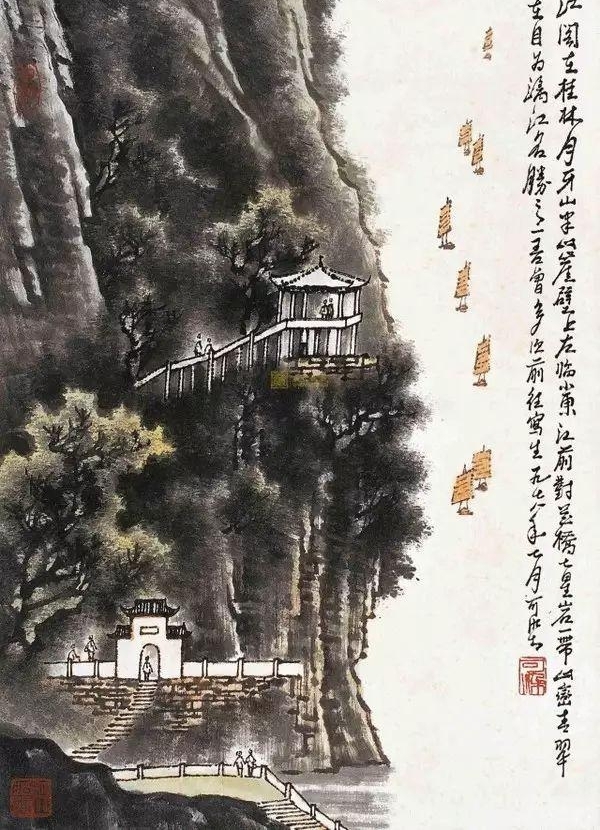 江阁在桂林月牙山半山崖壁上左临小東江前對花橋七星岩一带山巒青翠
在目为漓江名勝之一吾曾多次前往寫生一九七八年七月可染
可染